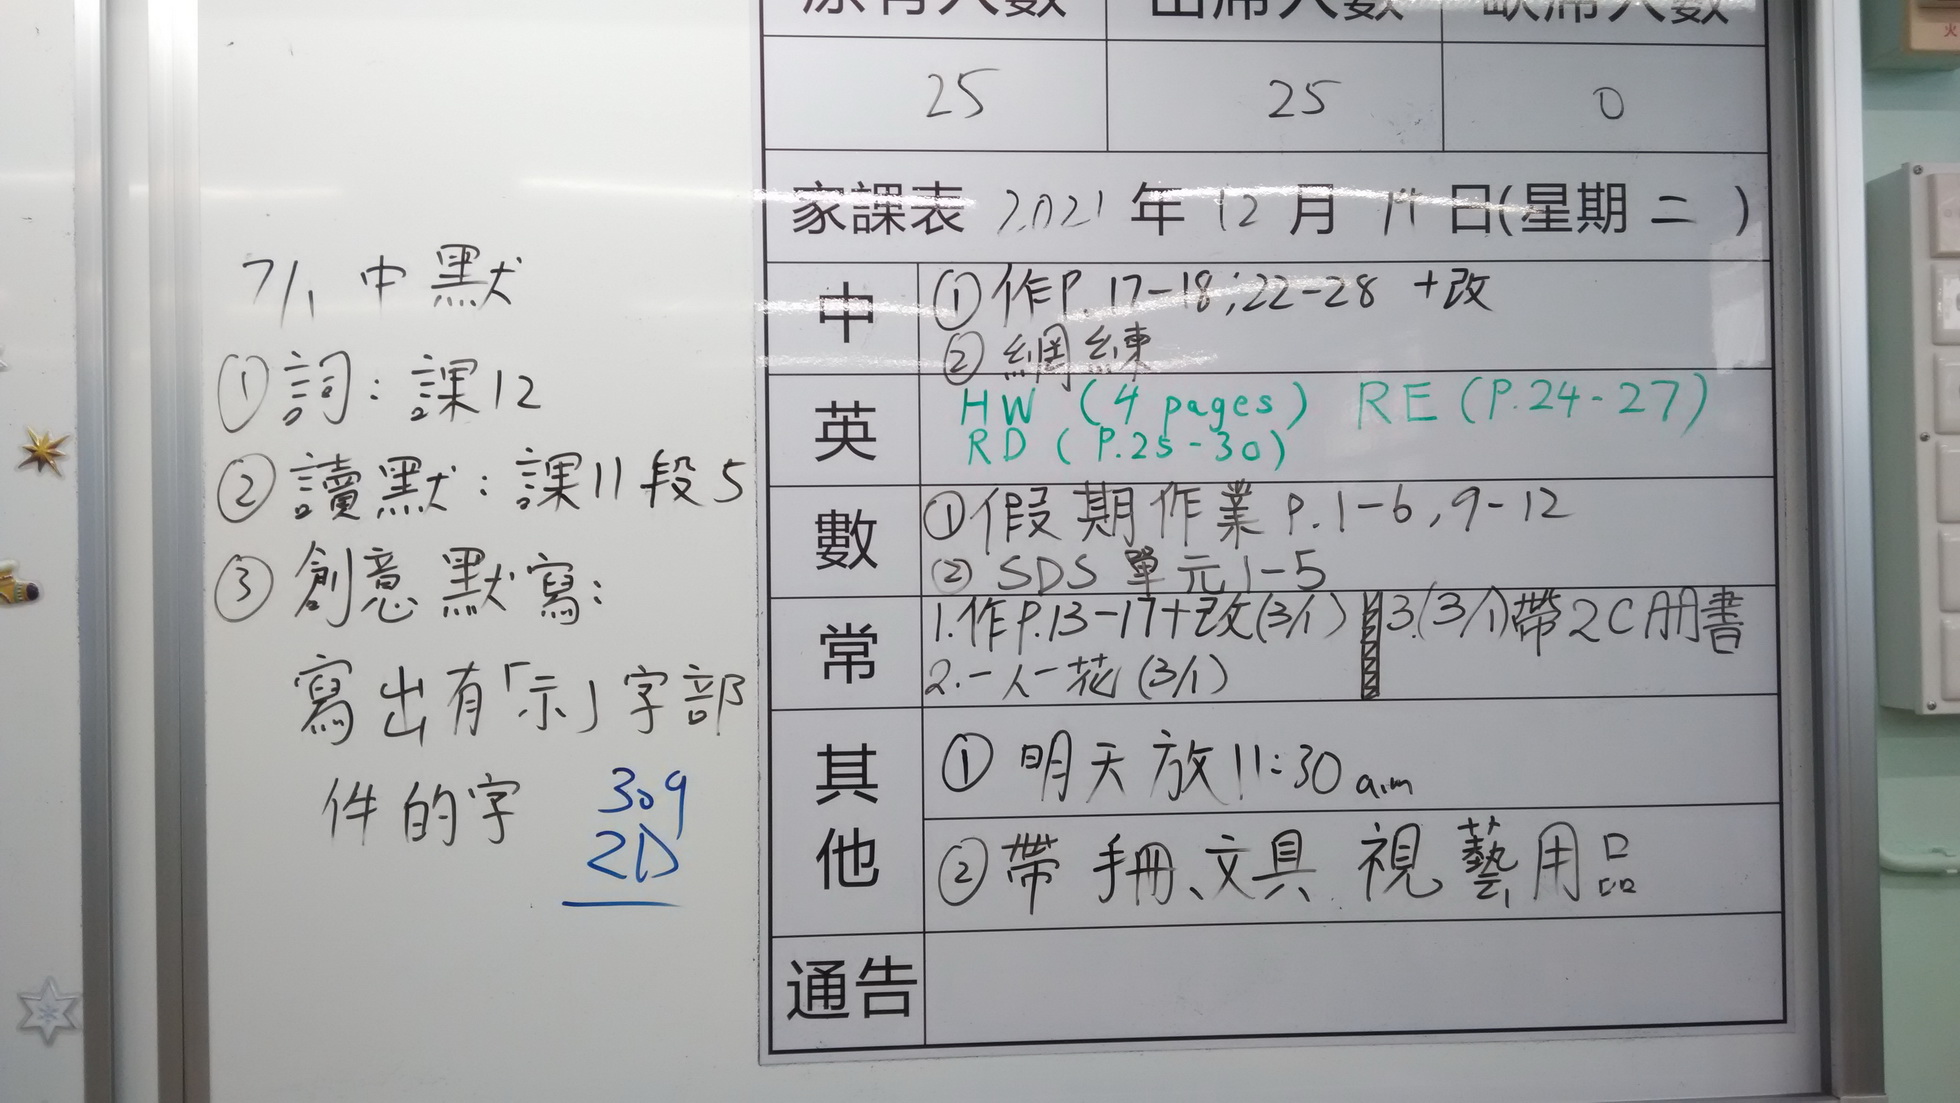 7/1 中默
①詞：課12
②讀默：課11段5
③創意默寫：
寫出有「示」字部
件的字
309
2D
原有人數 出席人數 缺席人數
25 25 0
家課表 2021 年 12 月 14 日(星期 二 )
中 ①作P.17-18;22-28 +改
②網練
英 HW (4 pages) RE (P.24-27)
RD (P.25-30)
數 ①假期作業 P.1-6,9-12
②SDS 單元1-5
常 1.作P.13-17+改(3/1) 3.(3/1)帶2C冊書
2.一人一花(3/1)
其他 ①明天放11:30 a.m
②帶手冊、文具 視藝用品
通告
火